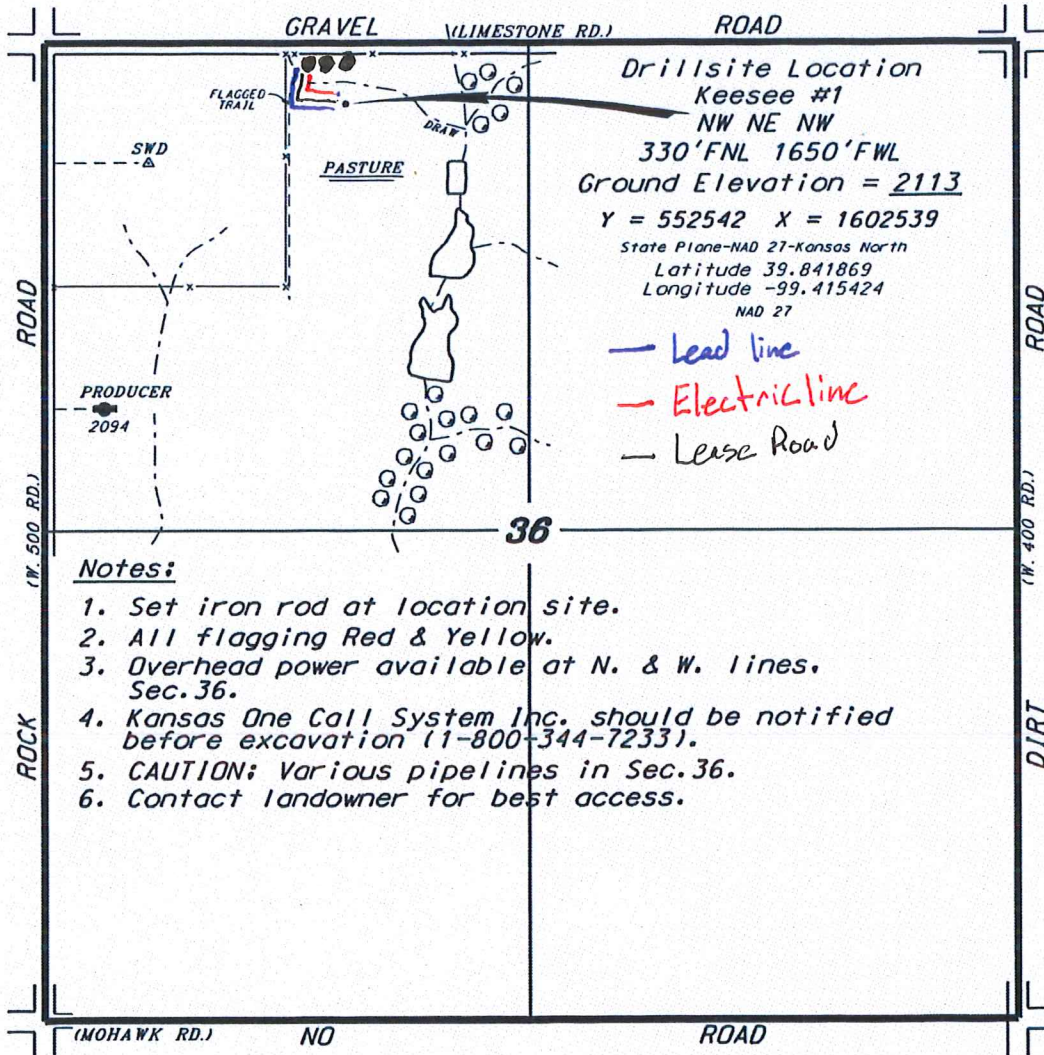 GRAVEL (LIMESTONE RD.) ROAD
Drillsite Location
Keesee #1
NW NE NW
330'FNL 1650'FWL
Ground Elevation = 2113
Y = 552542 X = 1602539
State Plane-NAD 27-Kansas North
Latitude 39.841869
Longitude -99.415424
NAD 27
— Lead line
— Electric line
— Lease Road
FLAGGED
TRAIL
DRAW
SWD
PASTURE
PRODUCER
2094
ROAD
(W. 500 RD.)
ROCK
ROAD
(W. 400 RD.)
DIRT
36
Notes:
1. Set iron rod at location site.
2. All flagging Red & Yellow.
3. Overhead power available at N. & W. lines.
Sec.36.
4. Kansas One Call System Inc. should be notified
before excavation (1-800-344-7233).
5. CAUTION: Various pipelines in Sec.36.
6. Contact landowner for best access.
(MOHAWK RD.) NO ROAD